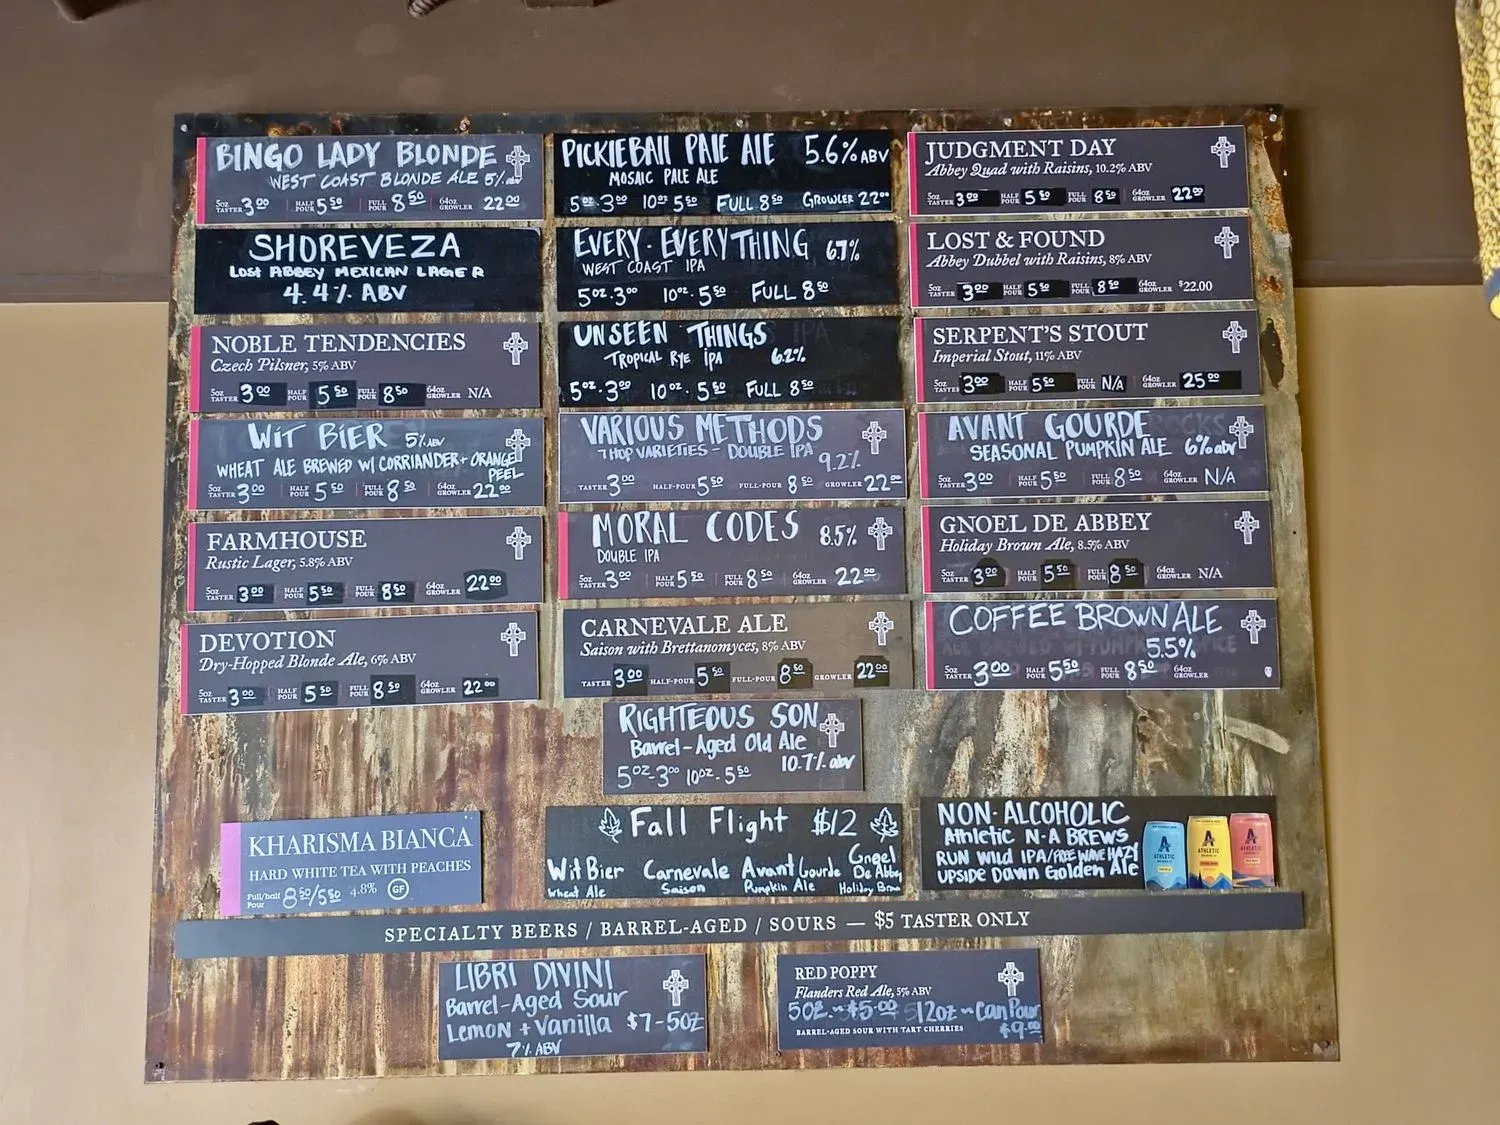 BINGO LADY BLONDE
WEST COAST BLONDE ALE 5% ABV
5oz TASTER 3.00 HALF POUR 5.50 FULL POUR 8.50 64oz GROWLER 22.00
SHOREVEZA
LOST ABBEY MEXICAN LAGER
4.4% ABV
NOBLE TENDENCIES
Czech Pilsner, 5% ABV
5oz TASTER 3.00 HALF POUR 5.50 FULL POUR 8.50 64oz GROWLER N/A
WIT BIER 5% ABV
WHEAT ALE BREWED W/ CORRIANDER + ORANGE
PEEL
5oz TASTER 3.00 HALF POUR 5.50 FULL POUR 8.50 64oz GROWLER 22.00
FARMHOUSE
Rustic Lager, 5.8% ABV
5oz TASTER 3.00 HALF POUR 5.50 FULL POUR 8.50 64oz GROWLER 22.00
DEVOTION
Dry-Hopped Blonde Ale, 6% ABV
5oz TASTER 3.00 HALF POUR 5.50 FULL POUR 8.50 64oz GROWLER 22.00
PICKLEBALL PALE ALE 5.6% ABV
MOSAIC PALE ALE
5oz. 3.00 10oz 5.50 FULL 8.50 GROWLER 22.00
EVERY-EVERYTHING 6.7%
WEST COAST IPA
5oz. 3.00 10oz. 5.50 FULL 8.50
UNSEEN THINGS
TROPICAL RYE IPA 6.2%
5oz. 3.00 10oz. 5.50 FULL 8.50
VARIOUS METHODS
7 HOP VARIETIES - DOUBLE IPA 9.2%
TASTER 3.00 HALF-POUR 5.50 FULL-POUR 8.50 GROWLER 22.00
MORAL CODES 8.5%
DOUBLE IPA
5oz TASTER 3.00 HALF POUR 5.50 FULL POUR 8.50 64oz GROWLER 22.00
CARNEVALE ALE
Saison with Brettanomyces, 8% ABV
TASTER 3.00 HALF-POUR 5.50 FULL-POUR 8.50 GROWLER 22.00
JUDGMENT DAY
Abbey Quad with Raisins, 10.2% ABV
5oz TASTER 3.00 HALF POUR 5.50 FULL POUR 8.50 64oz GROWLER 22.00
LOST & FOUND
Abbey Dubbel with Raisins, 8% ABV
5oz TASTER 3.00 HALF POUR 5.50 FULL POUR 8.50 64oz GROWLER $22.00
SERPENT'S STOUT
Imperial Stout, 11% ABV
5oz TASTER 3.00 HALF POUR 5.50 FULL POUR N/A 64oz GROWLER 25.00
AVANT GOURDE
SEASONAL PUMPKIN ALE 6% abv
5oz TASTER 3.00 HALF POUR 5.50 FULL POUR 8.50 64oz GROWLER N/A
GNOEL DE ABBEY
Holiday Brown Ale, 8.5% ABV
5oz TASTER 3.00 HALF POUR 5.50 FULL POUR 8.50 64oz GROWLER N/A
COFFEE BROWN ALE
5.5%
5oz TASTER 3.00 HALF POUR 5.50 FULL POUR 8.50 64oz GROWLER
RIGHTEOUS SON
Barrel-Aged Old Ale
10.7% abv
5oz-3.00 10oz. 5.50
KHARISMA BIANCA
HARD WHITE TEA WITH PEACHES
Full/half Pour 8.50/5.50 4.8% GF
Fall Flight $12
Wit Bier Carnevale Avant Gourde Gnoel De Abbey
Wheat Ale Saison Pumpkin Ale Holiday Brown
NON-ALCOHOLIC
Athletic N-A BREWS
RUN WILD IPA/FREE WAVE HAZY
UPSIDE DAWN Golden Ale
A ATHLETIC
A ATHLETIC
A ATHLETIC
SPECIALTY BEERS / BARREL-AGED / SOURS — $5 TASTER ONLY
LIBRI DIVINI
Barrel-Aged Sour
Lemon + Vanilla $7-5oz
7% ABV
RED POPPY
Flanders Red Ale, 5% ABV
5oz.~$5.00 12oz~Can Pour
$9.00
BARREL-AGED SOUR WITH TART CHERRIES